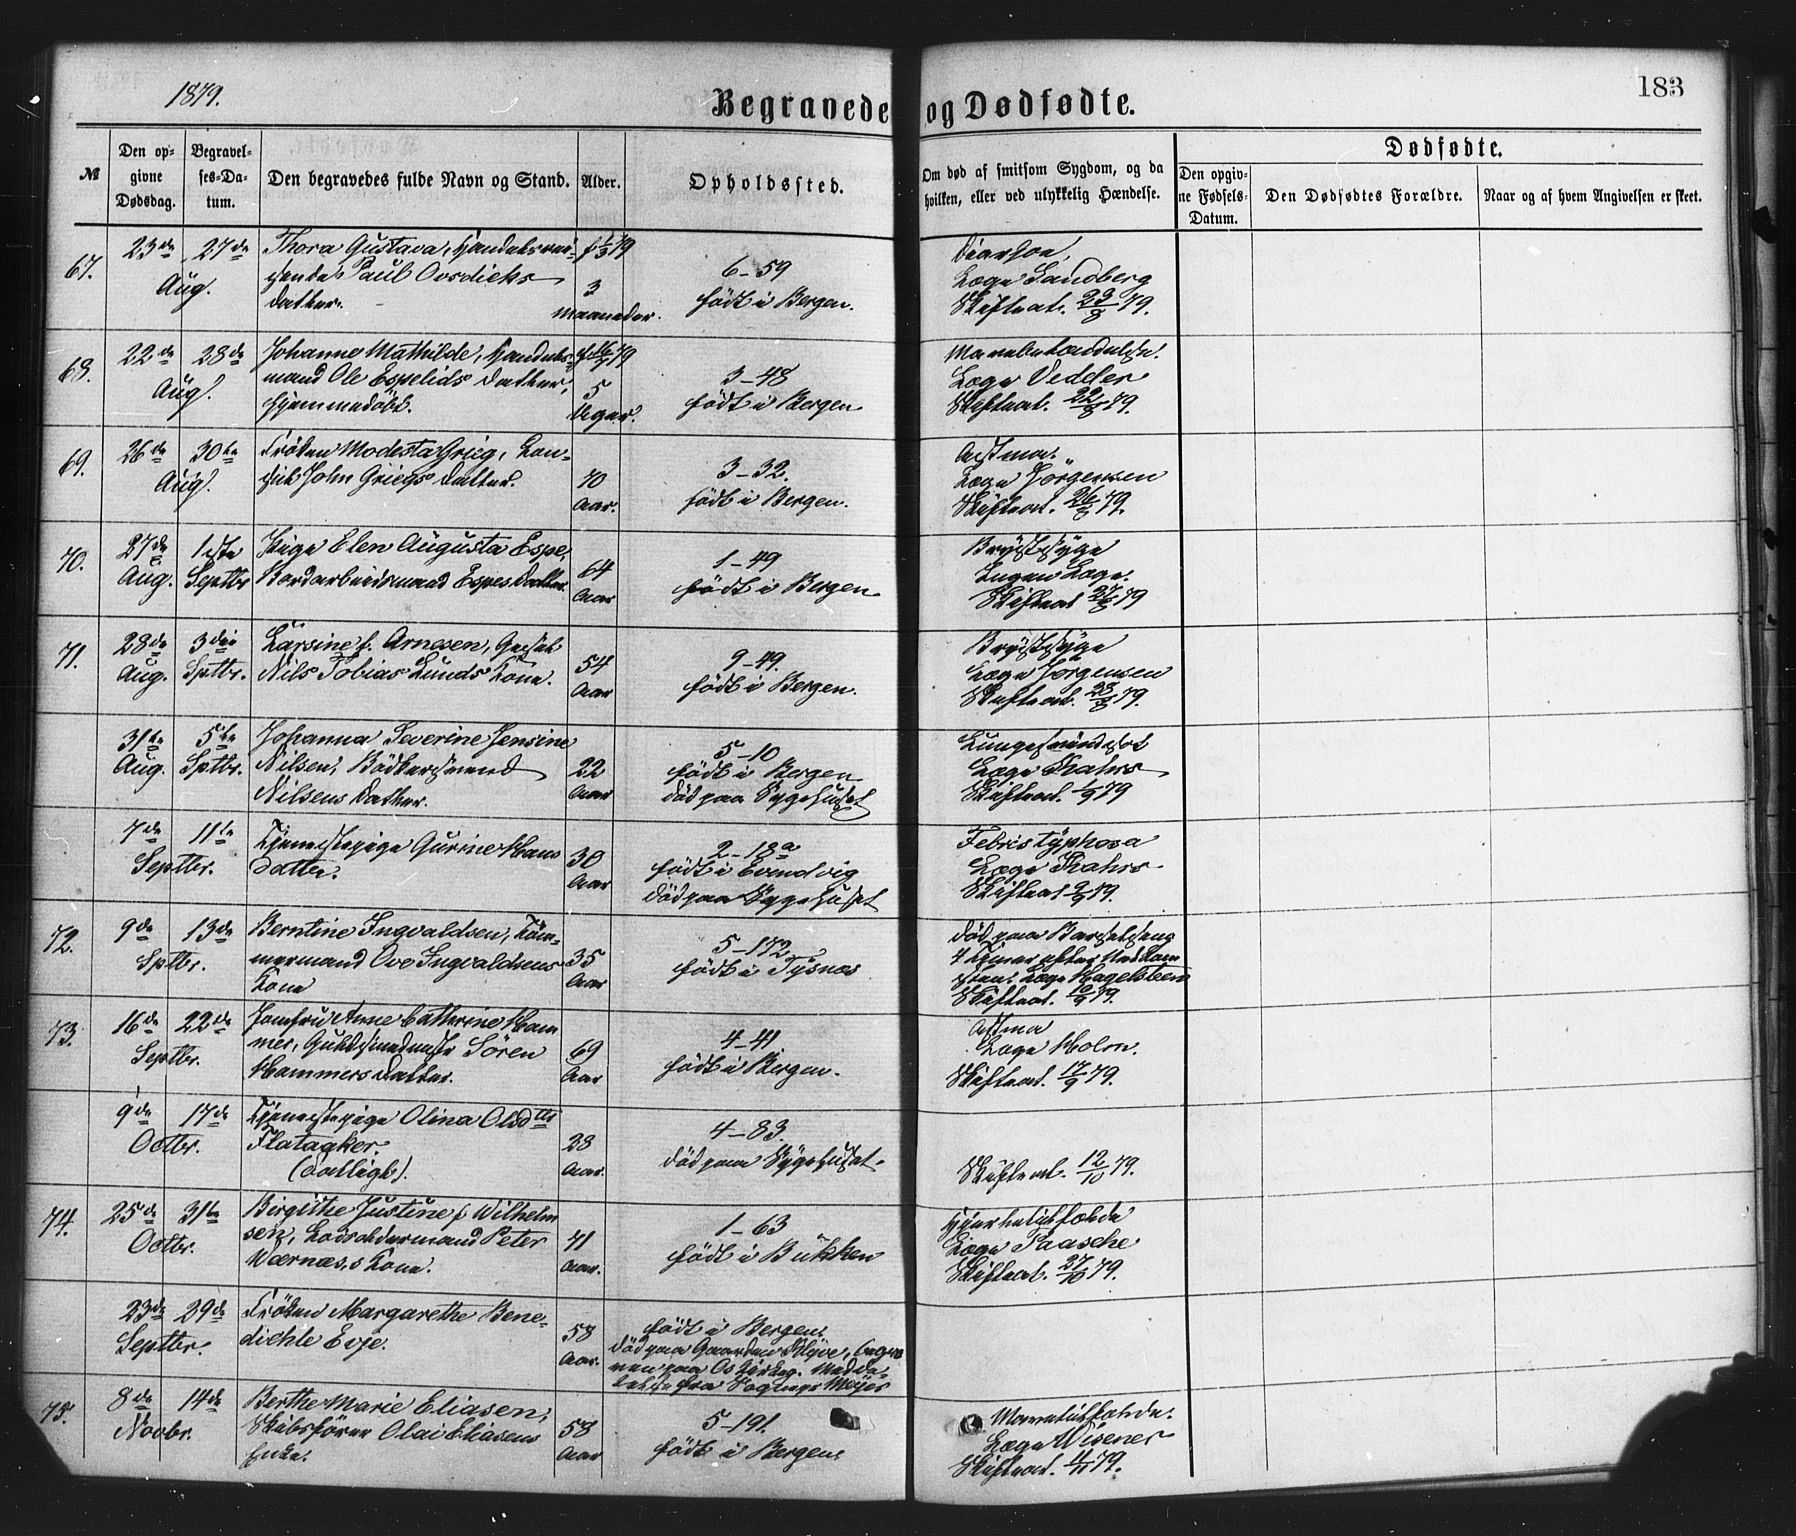 1879.
Begravede og Dødfødte.
183
№
Den op-
givne
Dødsdag.
Begravel-
ses-Da-
tum.
Den begravedes fulde Navn og Stand.
Alder.
Opholdssted.
Om død af smitsom Sygdom, og da
hvilken, eller ved ulykkelig Hændelse.
Dødfødte.
Den opgiv-
ne Fødsels-
Datum.
Den Dødfødtes Forældre.
Naar og af hvem Angivelsen er skeet.
67.
23de
Aug.
27de
Thora Gustava, Handelsrei-
sende Paul
Datter.
3
Maaneder.
6-59
født i Bergen.
Læge Sandberg
Skifteat. 23/8 79.
68.
22de
Aug.
28de
Johanne Mathilde, Handels-
mand Ole Espelids Datter,
hjemmedøbt.
5
Uger.
3-48
født i Bergen
Læge Vedeler
Skifteat. 22/8 79.
69.
26de
Aug.
30te
Frøken Modesta Grieg,
John Griegs Datter.
70
Aar.
3-32.
født i Bergen.
Astma.
Læge Jörgensen
Skifteat. 26/8 79.
70.
27de
Aug.
1ste
Septbr.
Pige Elen Augusta Espe,
Bordarbeidsmand Espes Datter.
64
Aar
1-49
født i Bergen.
Brystsyge
Ingen Læge.
Skifteat 27/8 79
71.
28de
Aug.
3die
Sptbr.
Larsine f. Arnesen,
Nils Tobias Lunds Kone.
54
Aar
9-49.
født i Bergen.
Brystsyge
Læge Jörgensen
Skifteat. 28/8 79.
31te
Aug.
5te
Sptbr.
Johanna Severine Jensine
Nilsen, Bødkersvend
Nilsens Datter.
22
Aar
5-10
født i Bergen
død paa Sygehuset
Lungesvindsot
Læge Kahrs
Skifteat. 1/9 79
7de
Septbr.
11te
Tjenestepige Gurine Hans
Datter.
30
Aar
2-18a
født i Evendvig
død paa Sygehuset
Febris typhosa
Læge Kahrs.
Skifteat 9/9 79.
72.
9de
Sptbr.
13de
Berntine Ingvaldsen, Töm-
mermand Ove Ingvaldsens
Kone
35
Aar
5-172
født i Tysnæs
død paa Barselseng
4 Timer efter Nedkom
sten. Læge Hagelsteen
Skifteat. 10/9 79.
73.
16de
Septbr.
22de
Jomfru Anne Cathrine Ham
mer, Guldsmedmester Sören
Hammers Datter.
69
Aar
4-41
født i Bergen.
Astma
Læge Holm.
Skifteat. 17/9 79.
9de
Octbr.
17de
Tjenestepige Olina Olsdtr
Flatagker.
28
Aar.
4-83.
død paa Sygehuset.
Skifteat. 12/10 79.
74.
25de
Octbr.
31te
Birgithe Justine f. Wilhelm
sen, Lodsoldermand Peter
Værnæs,s Kone.
41
Aar.
1-63
født i Bukken
Hjerteslag
Læge Paasche
Skifteat. 27/10 79.
23de
Septbr.
29de
Frøken Margarethe Bene-
dichte Evje.
58
Aar.
født i Bergen.
død paa Gaarden
Os Medde-
lelse fra
75.
8de
Novbr.
14de
Berthe Marie Eliasen,
Skibsfører Olai Eliasens
Enke.
58
Aar
5-191.
født i Bergen.
Læge Wisener
Skifteat. 79.